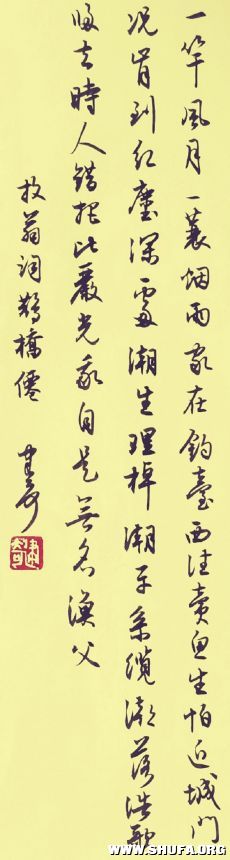 一竿風月一蓑烟雨家在釣臺西住賣魚生怕近城門
况肯到紅塵深處潮生理棹潮平系纜潮落浩歌
歸去時人錯把比嚴光我自是無名漁父
放翁詞鵲橋僊
WWW.SHUFA.ORG